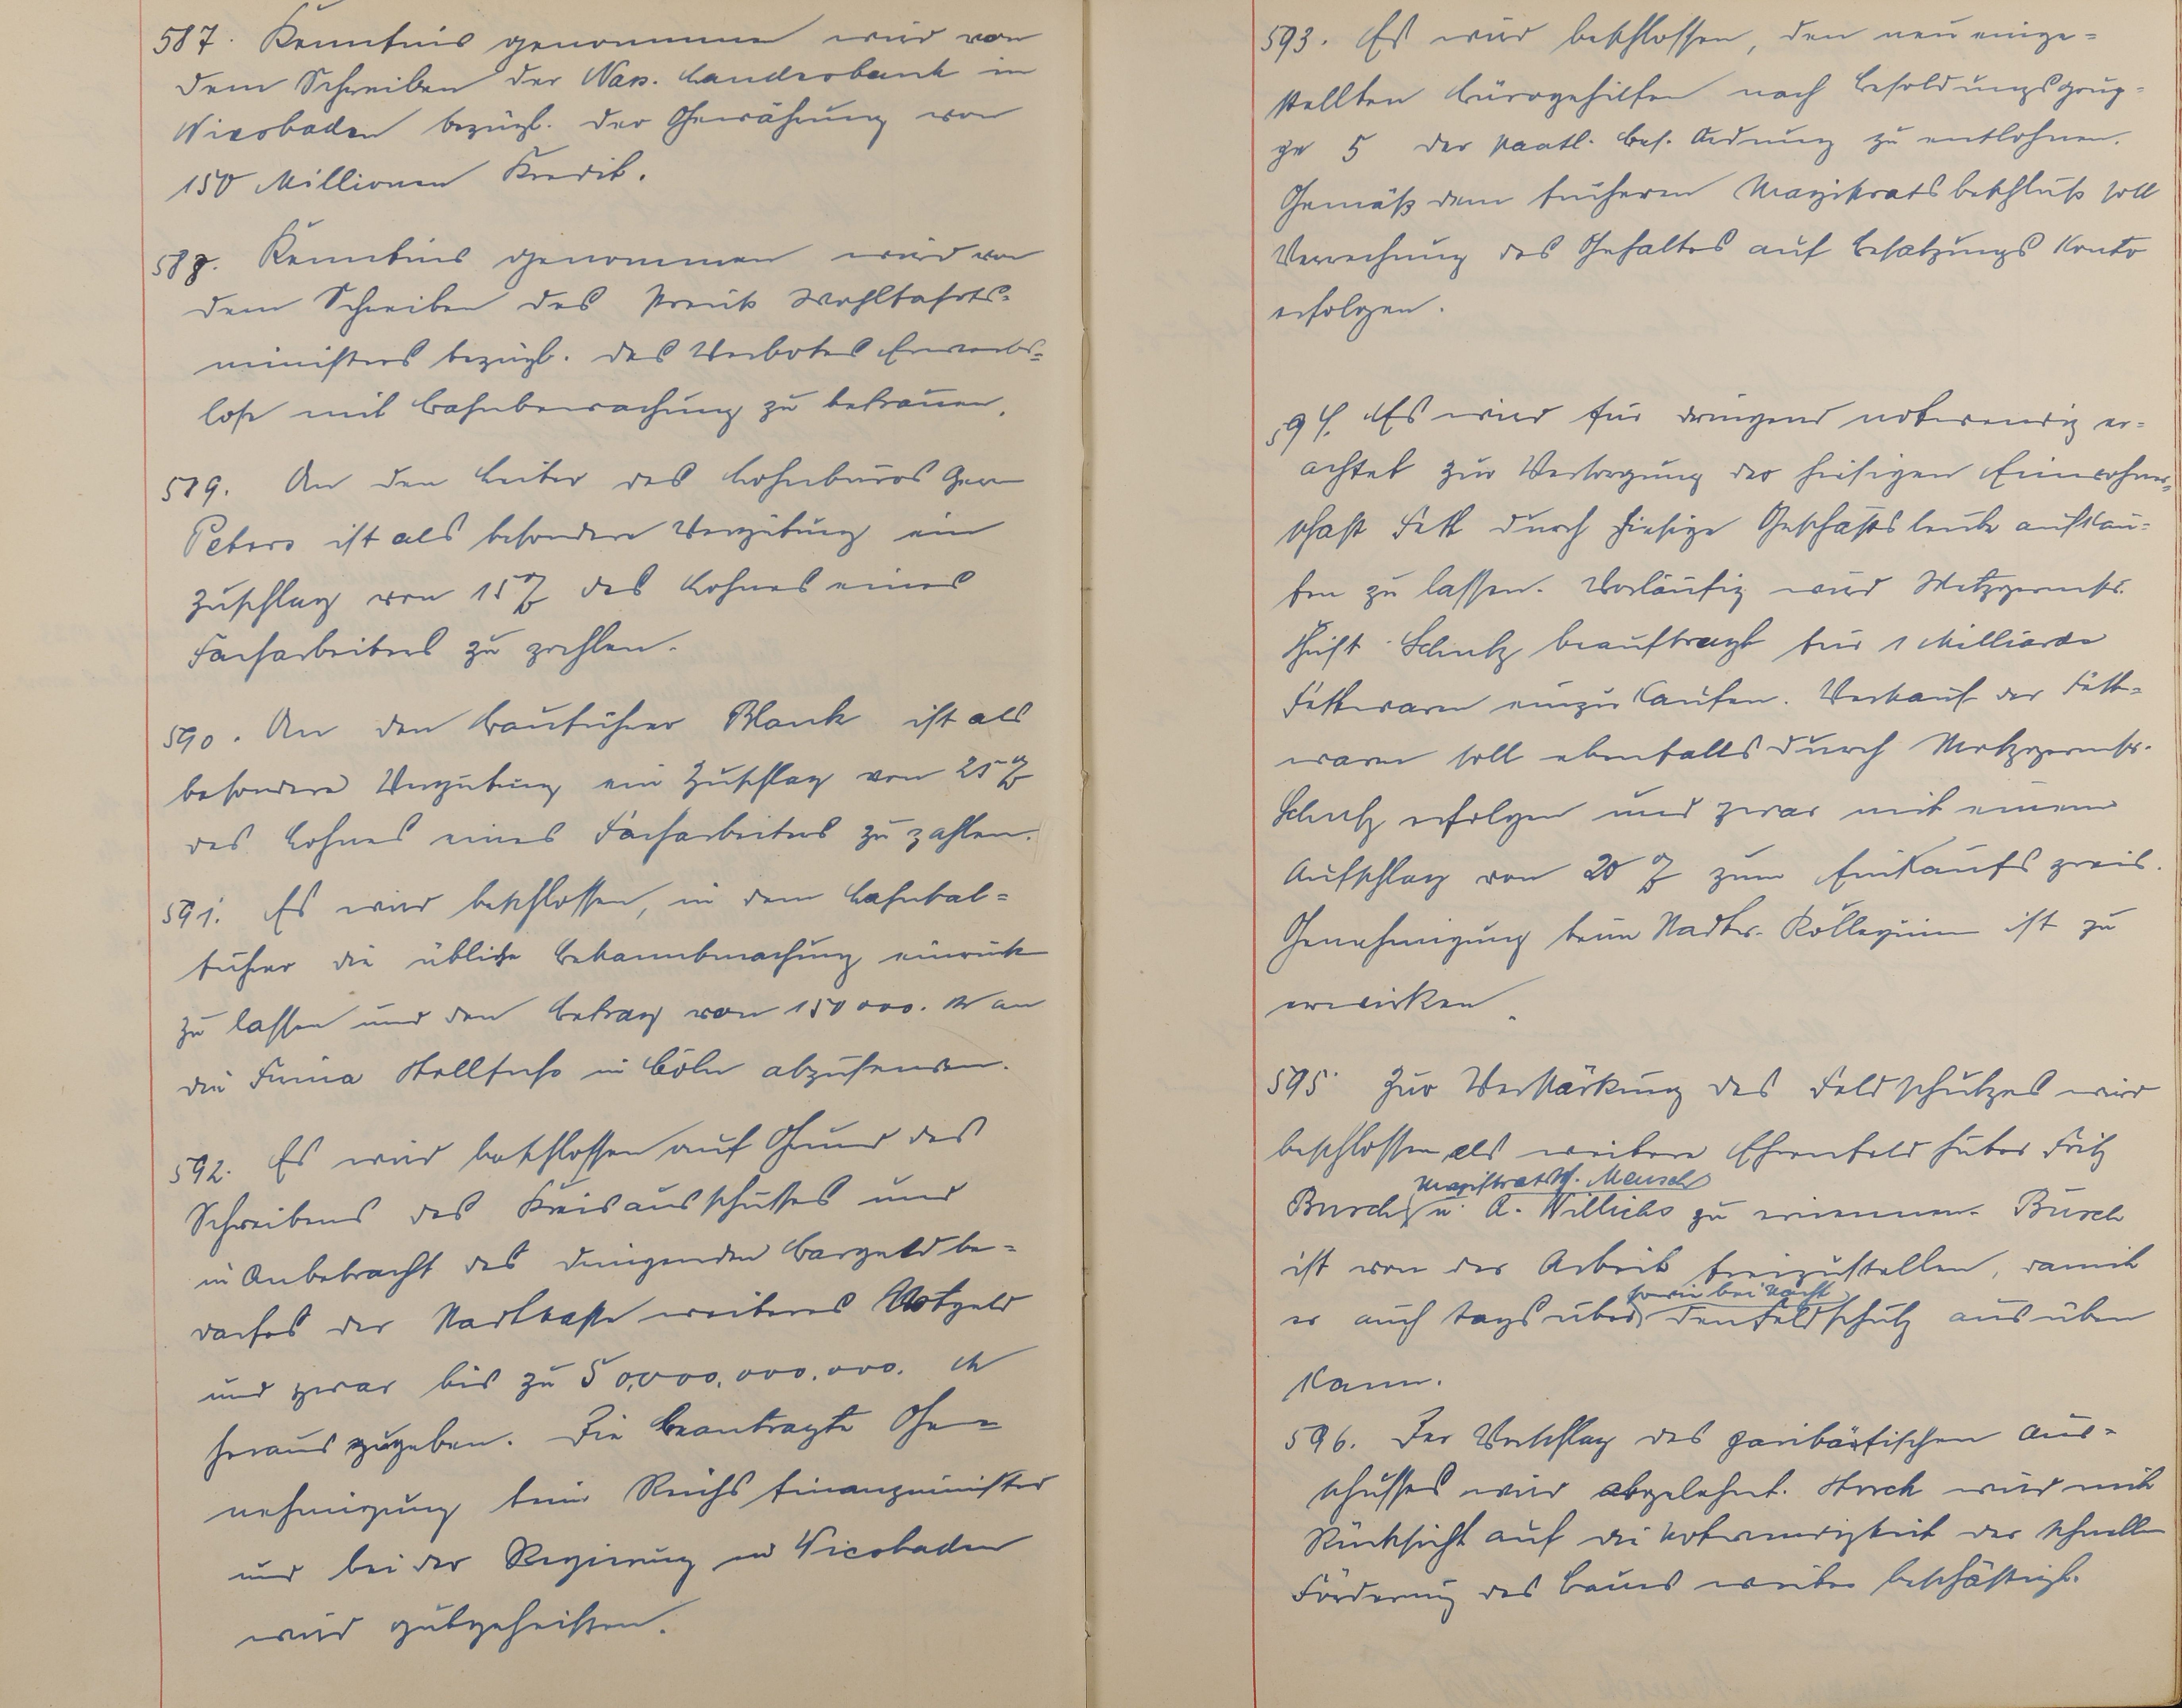 587. Kenntnis genommen wird von
dem Schreiben der Nass. Landesbank in
Wiesbaden bezügl. der Gewährung von
150 Millionen Kredit.
588. Kenntnis genommen wird von
dem Schreiben des Preuß Wohlfahrts-
ministers bezügl. des Verbotes Erwerbs-
lose mit Bahnbewachung zu betrauen.
589. An den Leiter des Lohnbüros Herrn
Peters ist als besondere Vergütung ein
Zuschlag von 15% des Lohnes eines
Facharbeiters zu zahlen.
590. An den Bauführer Blank ist als
besondere Vergütung ein Zuschlag von 25%
des Lohnes eines Facharbeiters zu zahlen.
591. Es wird beschlossen, in dem Lahntal-
führer die übliche Bekanntmachung einrücken
zu lassen und den Betrag von 150 000. M an
die Firma Stollfuß in Cöln abzusenden.
592. Es wird beschlossen auf Grund des
Schreibens des Kreisausschusses und
in Anbetracht des dringenden Bargeldbe-
darfes der Stadtkasse weiteres Notgeld
und zwar bis zu 50,000,000,000. M
heraus zugeben. Die beantragte Ge-
nehmigung beim Reichsfinanzminister
und bei der Regierung in Wiesbaden
wird gutgeheißen.
593. Es wird beschlossen, den neu einge-
stellten Bürogehilfen nach Besoldungsgrup-
pe 5 der staatl. Bes. Ordnung zu entlohnen.
Gemäß dem früheren Magistratsbeschluß soll
Verrechnung des Gehaltes auf Besatzungs Konto
erfolgen.
594. Es wird für dringend notwendig er-
achtet zur Versorgung der hiesigen Einwohner-
schaft Fett durch hiesige Geschäftsleute aufkau-
fen zu lassen. Vorläufig wird Metzgermstr.
Schutz beauftragt für 1 Milliarde
Fettwaren einzukaufen. Verkauf der Fett-
waren soll ebenfalls durch Metzgermstr.
Schutz erfolgen und zwar mit einem
Aufschlag von 20 % zum Einkaufspreis.
Genehmigung beim Stadtv. Kollegium ist zu
erwirken.
595 Zur Verstärkung des Feldschutzes wird
beschlossen als weitere Ehrenfeldhüter Fritz
Magistratssch. Mensch
Busch u. A. Willichs zu ernennen. Busch
ist von der Arbeit freizustellen, damit
sowie bei Nacht
er auch tagsüber den Feldschutz ausüben
kann.
596. Der Vorschlag des paritätischen Aus-
schusses wird abgelehnt. Storch wird mit
Rücksicht auf die Notwendigkeit der schnellen
Förderung des Baues weiter beschäftigt.